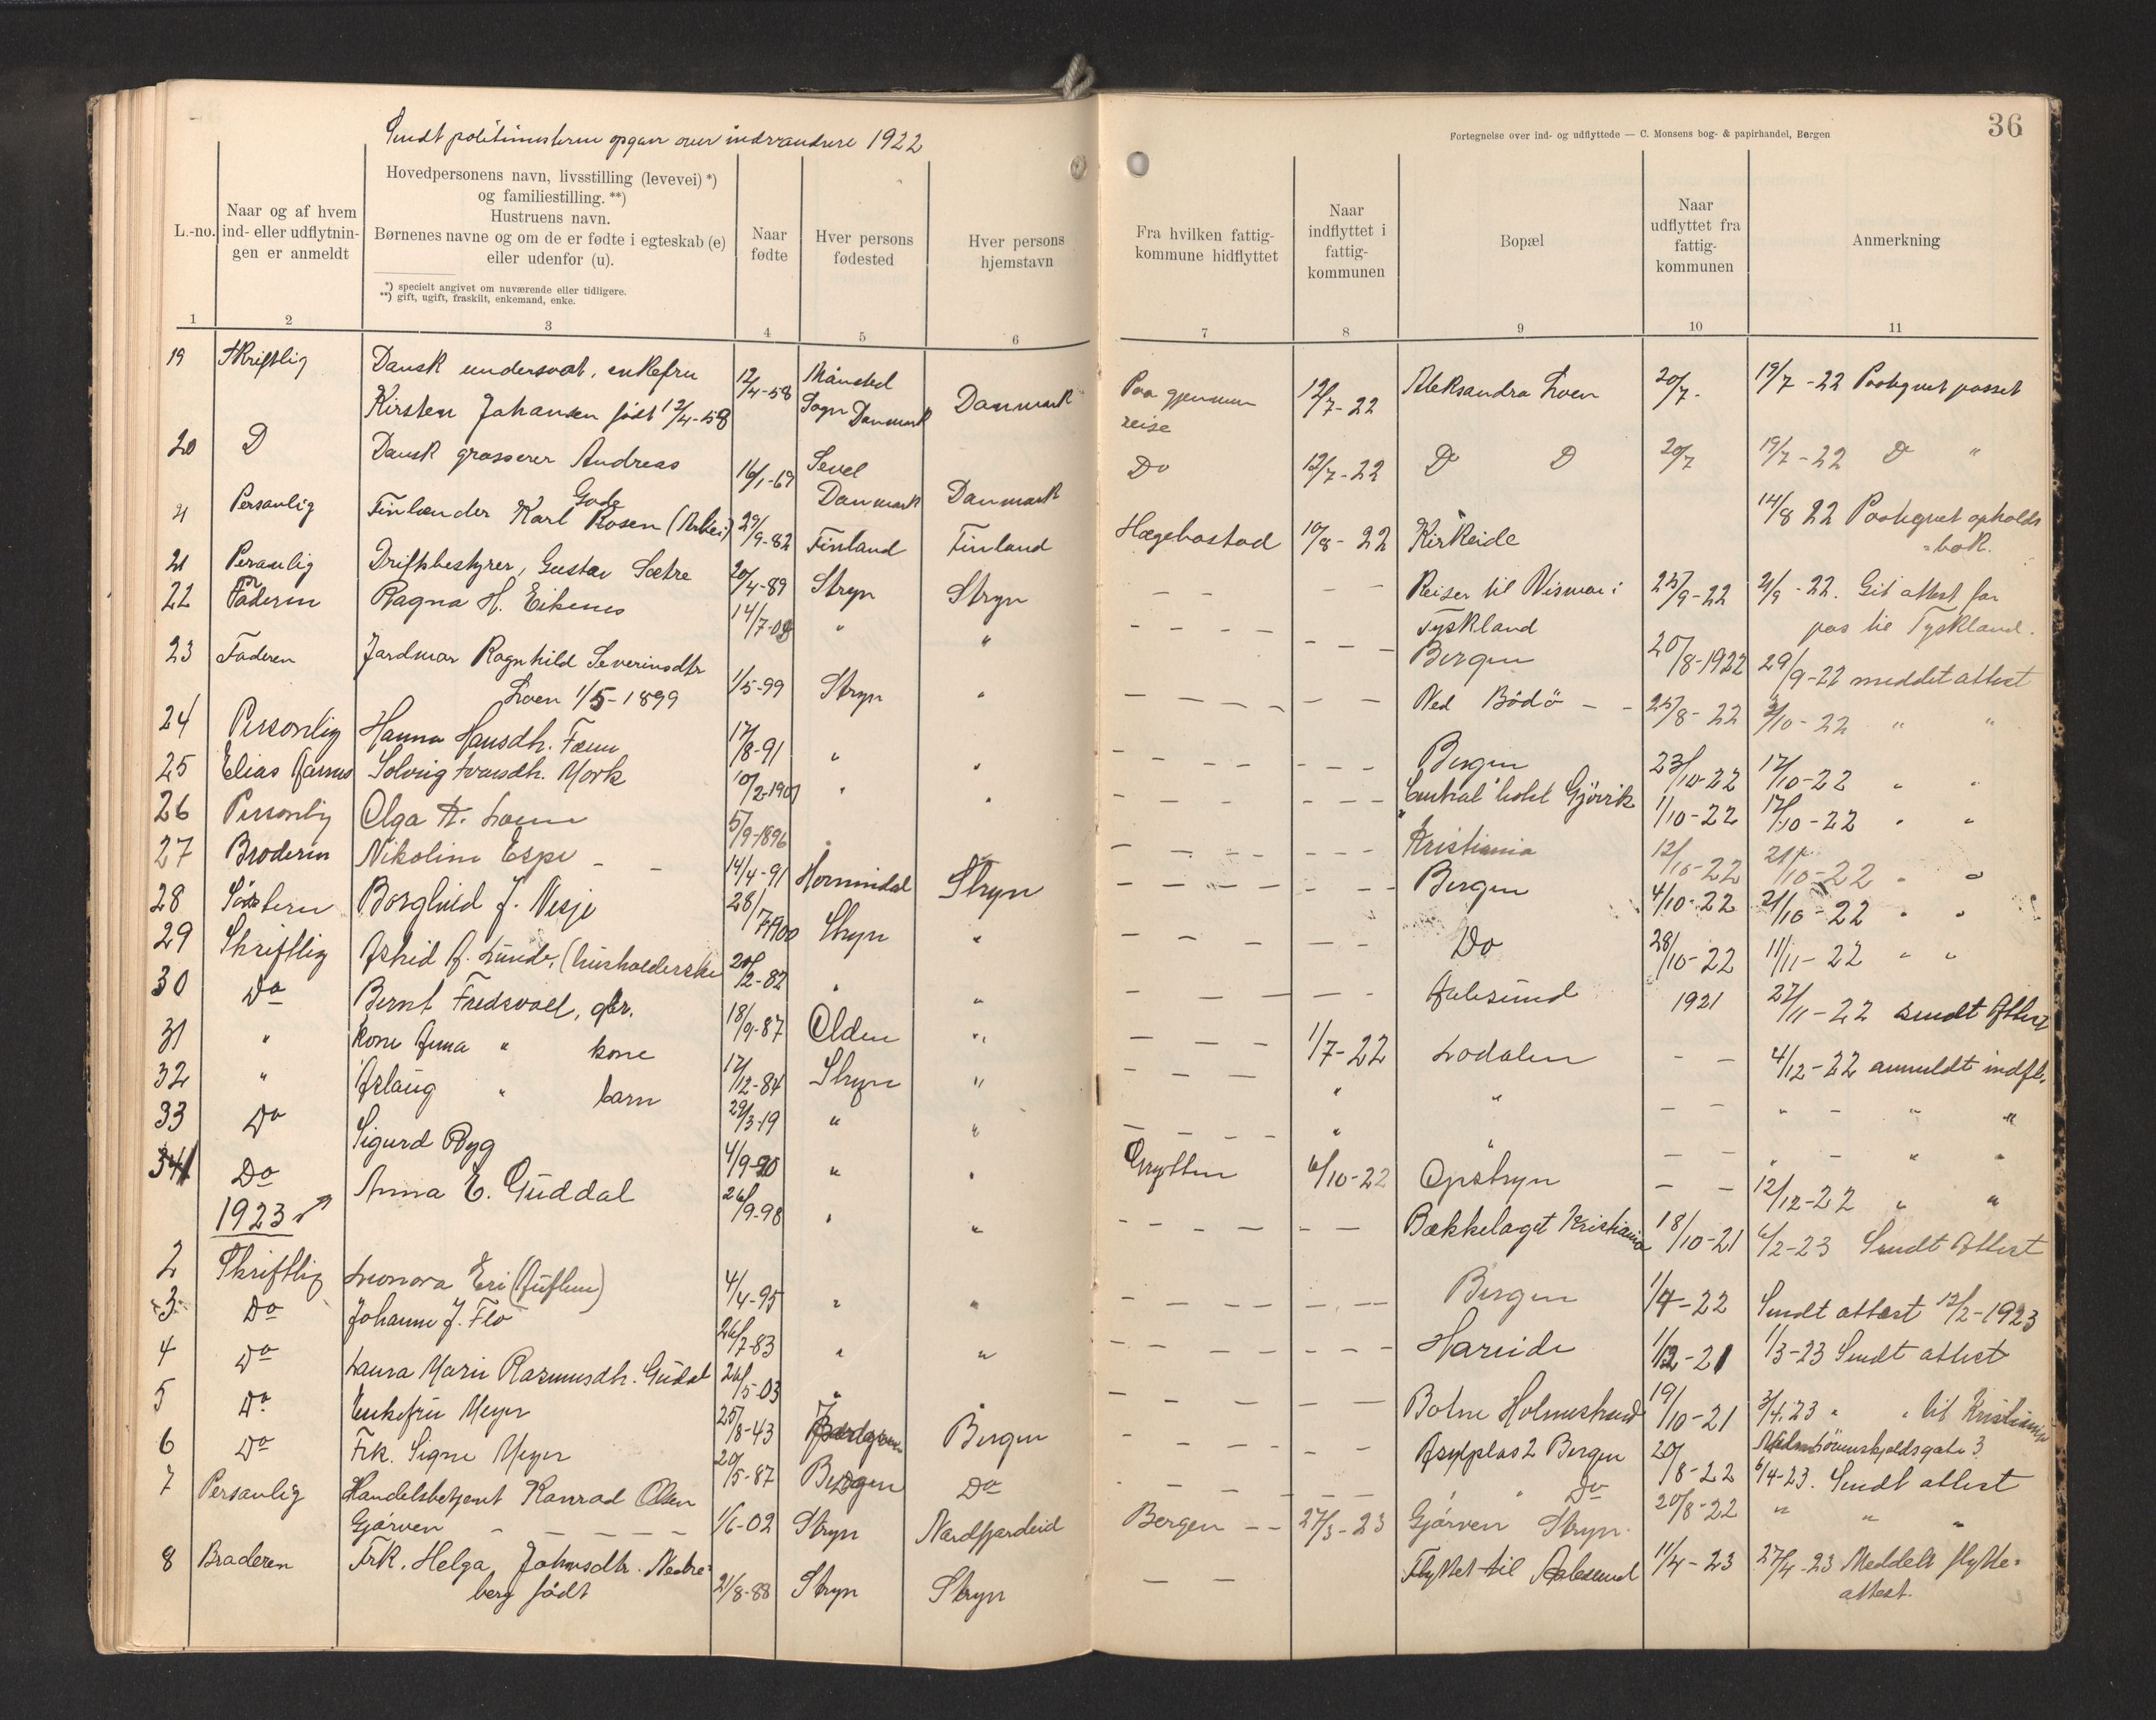 Sendt politimesteren opgave over indvandrere 1922
Fortegnelse over ind- og udflyttede — C. Monsens bog- & papirhandel, Bergen
36
L.-no.
Naar og af hvem ind- eller udflytningen er anmeldt
Hovedpersonens navn, livsstilling (levevei) *)
og familiestilling. **)
Hustruens navn.
Børnenes navne og om de er fødte i egteskab (e)
eller udenfor (u).
*) specielt angivet om nuværende eller tidligere.
**) gift, ugift, fraskilt, enkemand, enke.
Naar fødte
Hver persons fødested
Hver persons hjemstavn
Fra hvilken fattigkommune hidflyttet
Naar indflyttet i fattigkommunen
Bopæl
Naar udflyttet fra fattigkommunen
Anmerkning
1 2 3 4 5 6 7 8 9 10 11
19 Skriftlig Dansk undersaat, enkefru 12/4-58 Månsted Paa gjennem 12/7-22 Aleksandra Loen 20/7- 19/7-22 Paategnet passet
Kirsten Johansen født 12/4-58 Sogn Danmark Danmark reise
20 D Dansk grosserer Andreas 16/1-67 Sevel Do 12/7-22 D D 20/7 19/7-22 D "
Gade Danmark Danmark
21 Personlig Finlænder Karl Rosen (Arbei) 29/9-82 Finland Finland Hægebostad 10/8-22 Kirkeide 14/8 22 Paategnet opholds
=bok.
21 Personlig Driftsbestyrer, Gustav Sætre 20/4-89 Stryn Stryn — — — Reiser til Wismar i 25/9-22 21/9-22. Git attest for
Tyskland pas til Tyskland.
22 Faderen Ragna H. Eikenes 14/7-08 " " — — — — Bergen 20/8-1922 29/9-22 meddelt attest
23 Faderen Jardmar Ragnhild Severinsdtr 1/5-99 Stryn " — — — — Ved Bodö — — 25/8-22 3/10-22 " "
Loen 1/5-1899
24 Personlig Hanna Hansdtr. Fænn 17/8-91 " " — — — — Bergen 23/10-22 17/10-22 " "
25 Elias Aarnes Solveig Ivarsdtr. Mork 10/2-1901 " " — — — — Central hotel Gjövik 1/10-22 17/10-22 " "
26 Personlig Olga A. Loen 5/9-1896 " — — — — Kristiania 12/10-22 21/10-22 " "
27 Broderen Nikoline Espe — — 14/4-91 Hornindal Stryn — — — — Bergen 4/10-22 21/10-22 " "
28 Søsteren Borghild J. Vesje 28/7-1900 Stryn " — — — — Do 28/10-22 11/11-22 " "
29 Skriftlig Astrid A. Lunde, (husholderske 20/2-82 " " — — — — Aalesund 1921 27/11-22 sendt Attest
30 Do Bernt Fredsvoll, gbr. 18/9-87 Olden " — — — 1/7-22 Lodalen — — 4/12-22 anmeldt indfl.
31 " kone Anna " kone 17/12-84 Stryn " — — — " " — — " — " "
32 " Aslaug " barn 29/3-19 " " — — — — " " — — " — " "
33 Do Sigurd Ryg 4/9-20 " " Grytten 6/10-22 Opstryn — — 12/12-22 " "
341 Do Anna E. Guddal 26/9-98 " " — — — — Bækkelaget Kristiania 18/10-21 6/2-23 Sendt Attest
1923
2 Skriftlig Leonora Eri (Auflem) 4/4-95 " " — — — — Bergen 1/4-22 Sendt attest 12/2-1923
3 Do Johanne J. Flo 26/7-83 " " — — — — Hareide 1/12-21 1/3-23 Sendt attest
4 Do Laura Marie Rasmusdtr. Gudal 26/5-03 " " — — — — Botne Holmestrand 19/10-21 3/4.23 " " til Kristiania
5 Do Enkefru Meyer 25/8-43 Bergen — — — — Asylplas 2 Bergen 20/8-22 6/4-23. Sendt attest
6 Do Frk. Signe Meyer 20/5-87 Bergen Do — — — — " " Do 20/8-22 " " "
7 Personlig Handelsbetjent Konrad Olsen
Gjörven — — — — 1/6-02 Stryn Nordfjordeid Bergen — — 27/3-23 Gjörven Stryn.
8 Broderen Frk. Helga Johnsdtr. Nedre= 21/8-88 Stryn Stryn — — Flyttet til Aalesund 11/4-23 27/4-23 Meddelt flytte=
berg född attest.